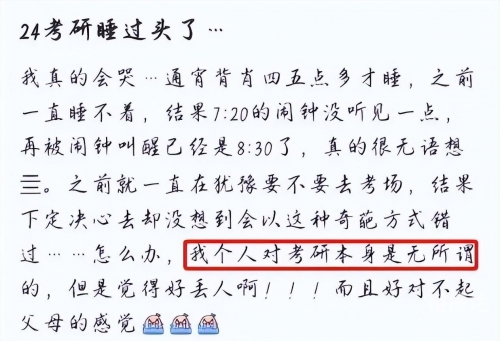 24考研睡过头了…
我真的会哭…通宵背肖四五点多才睡，之前
一直睡不着，结果7:20的闹钟没听见一点，
再被闹钟叫醒已经是8:30了，真的很无语想
三。之前就一直在犹豫要不要去考场，结果
下定决心去却没想到会以这种奇葩方式错
过……怎么办，我个人对考研本身是无所谓
的，但是觉得好丢人啊！！！而且好对不起
父母的感觉